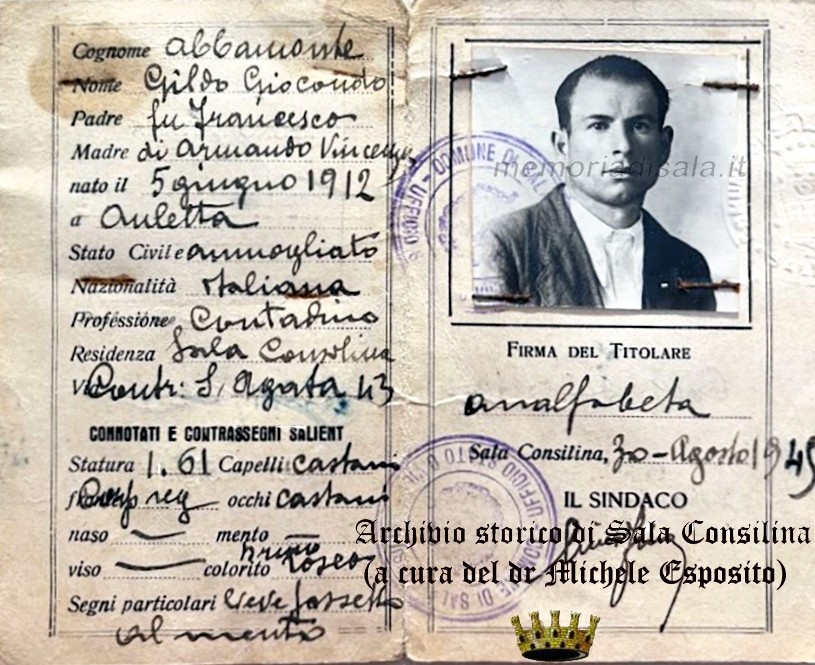 Cognome Abbamonte
Nome Gildo Giocondo
Padre fu Francesco
Madre di Armando Vincenza
nato il 5 giugno 1912
a Auletta
Stato Civile ammogliato
Nazionalità Italiana
Professione Contadino
Residenza Sala Consilina
Via Contr: S. Agata 43
CONNOTATI E CONTRASSEGNI SALIENT
Statura 1.61 Capelli castani
Corp reg occhi castani
naso mento
viso colorito bruno roseo
Segni particolari lieve fossetta
al mento
memoriadisala.it
FIRMA DEL TITOLARE
analfabeta
Sala Consilina, 30-Agosto 1945
IL SINDACO
Archivio storico di Sala Consilina
(a cura del dr Michele Esposito)